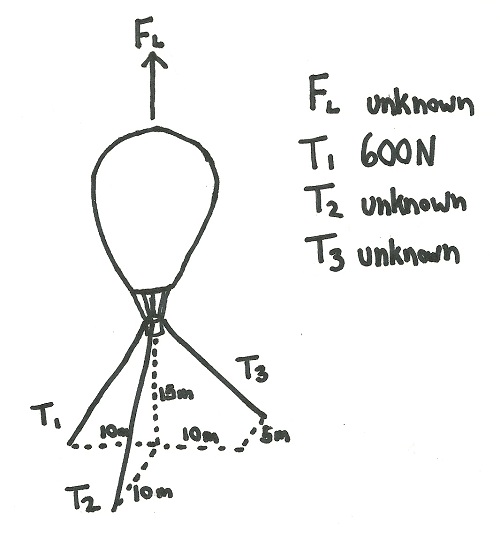 F_L
F_L unknown
T_1 600N
T_2 unknown
T_3 unknown
T_3
15m
T_1
10m
10m
5m
T_2
10m